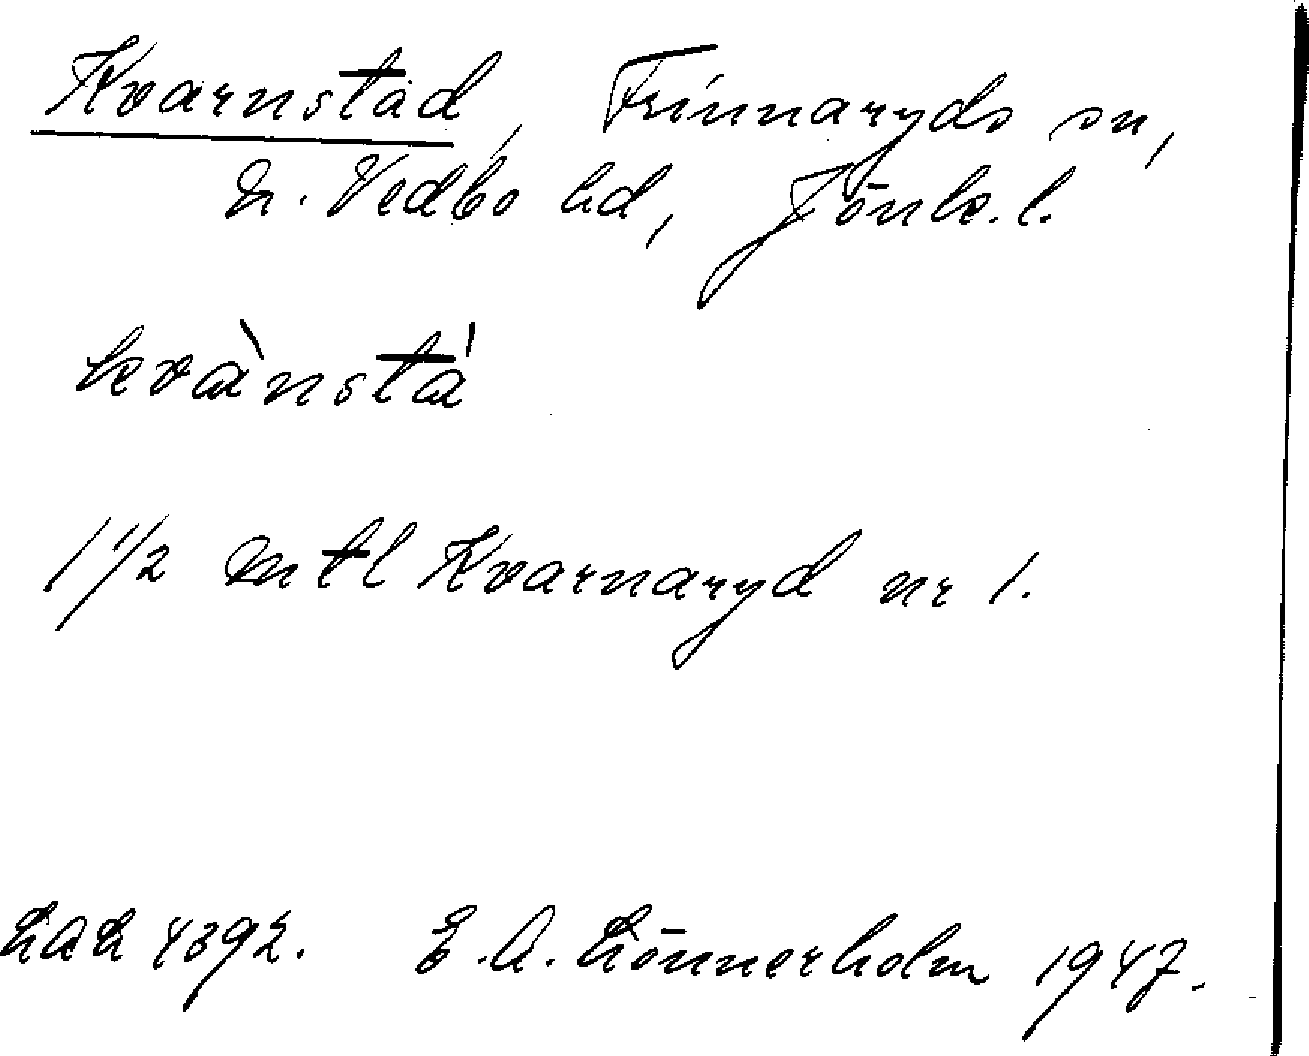 Kvarnstad, Frinnaryds sn,
N. Vedbo hd, Jönk. l.
kvànstá
1 1/2 mtl Kvarnaryd nr 1.
4392. E. A. Lönnerholm 1947.